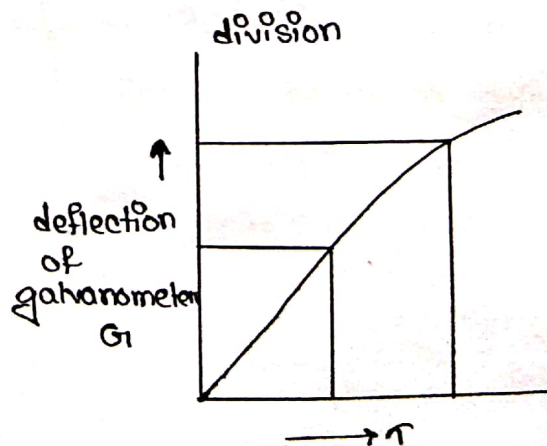 division
deflection
of
galvanometer
G
T